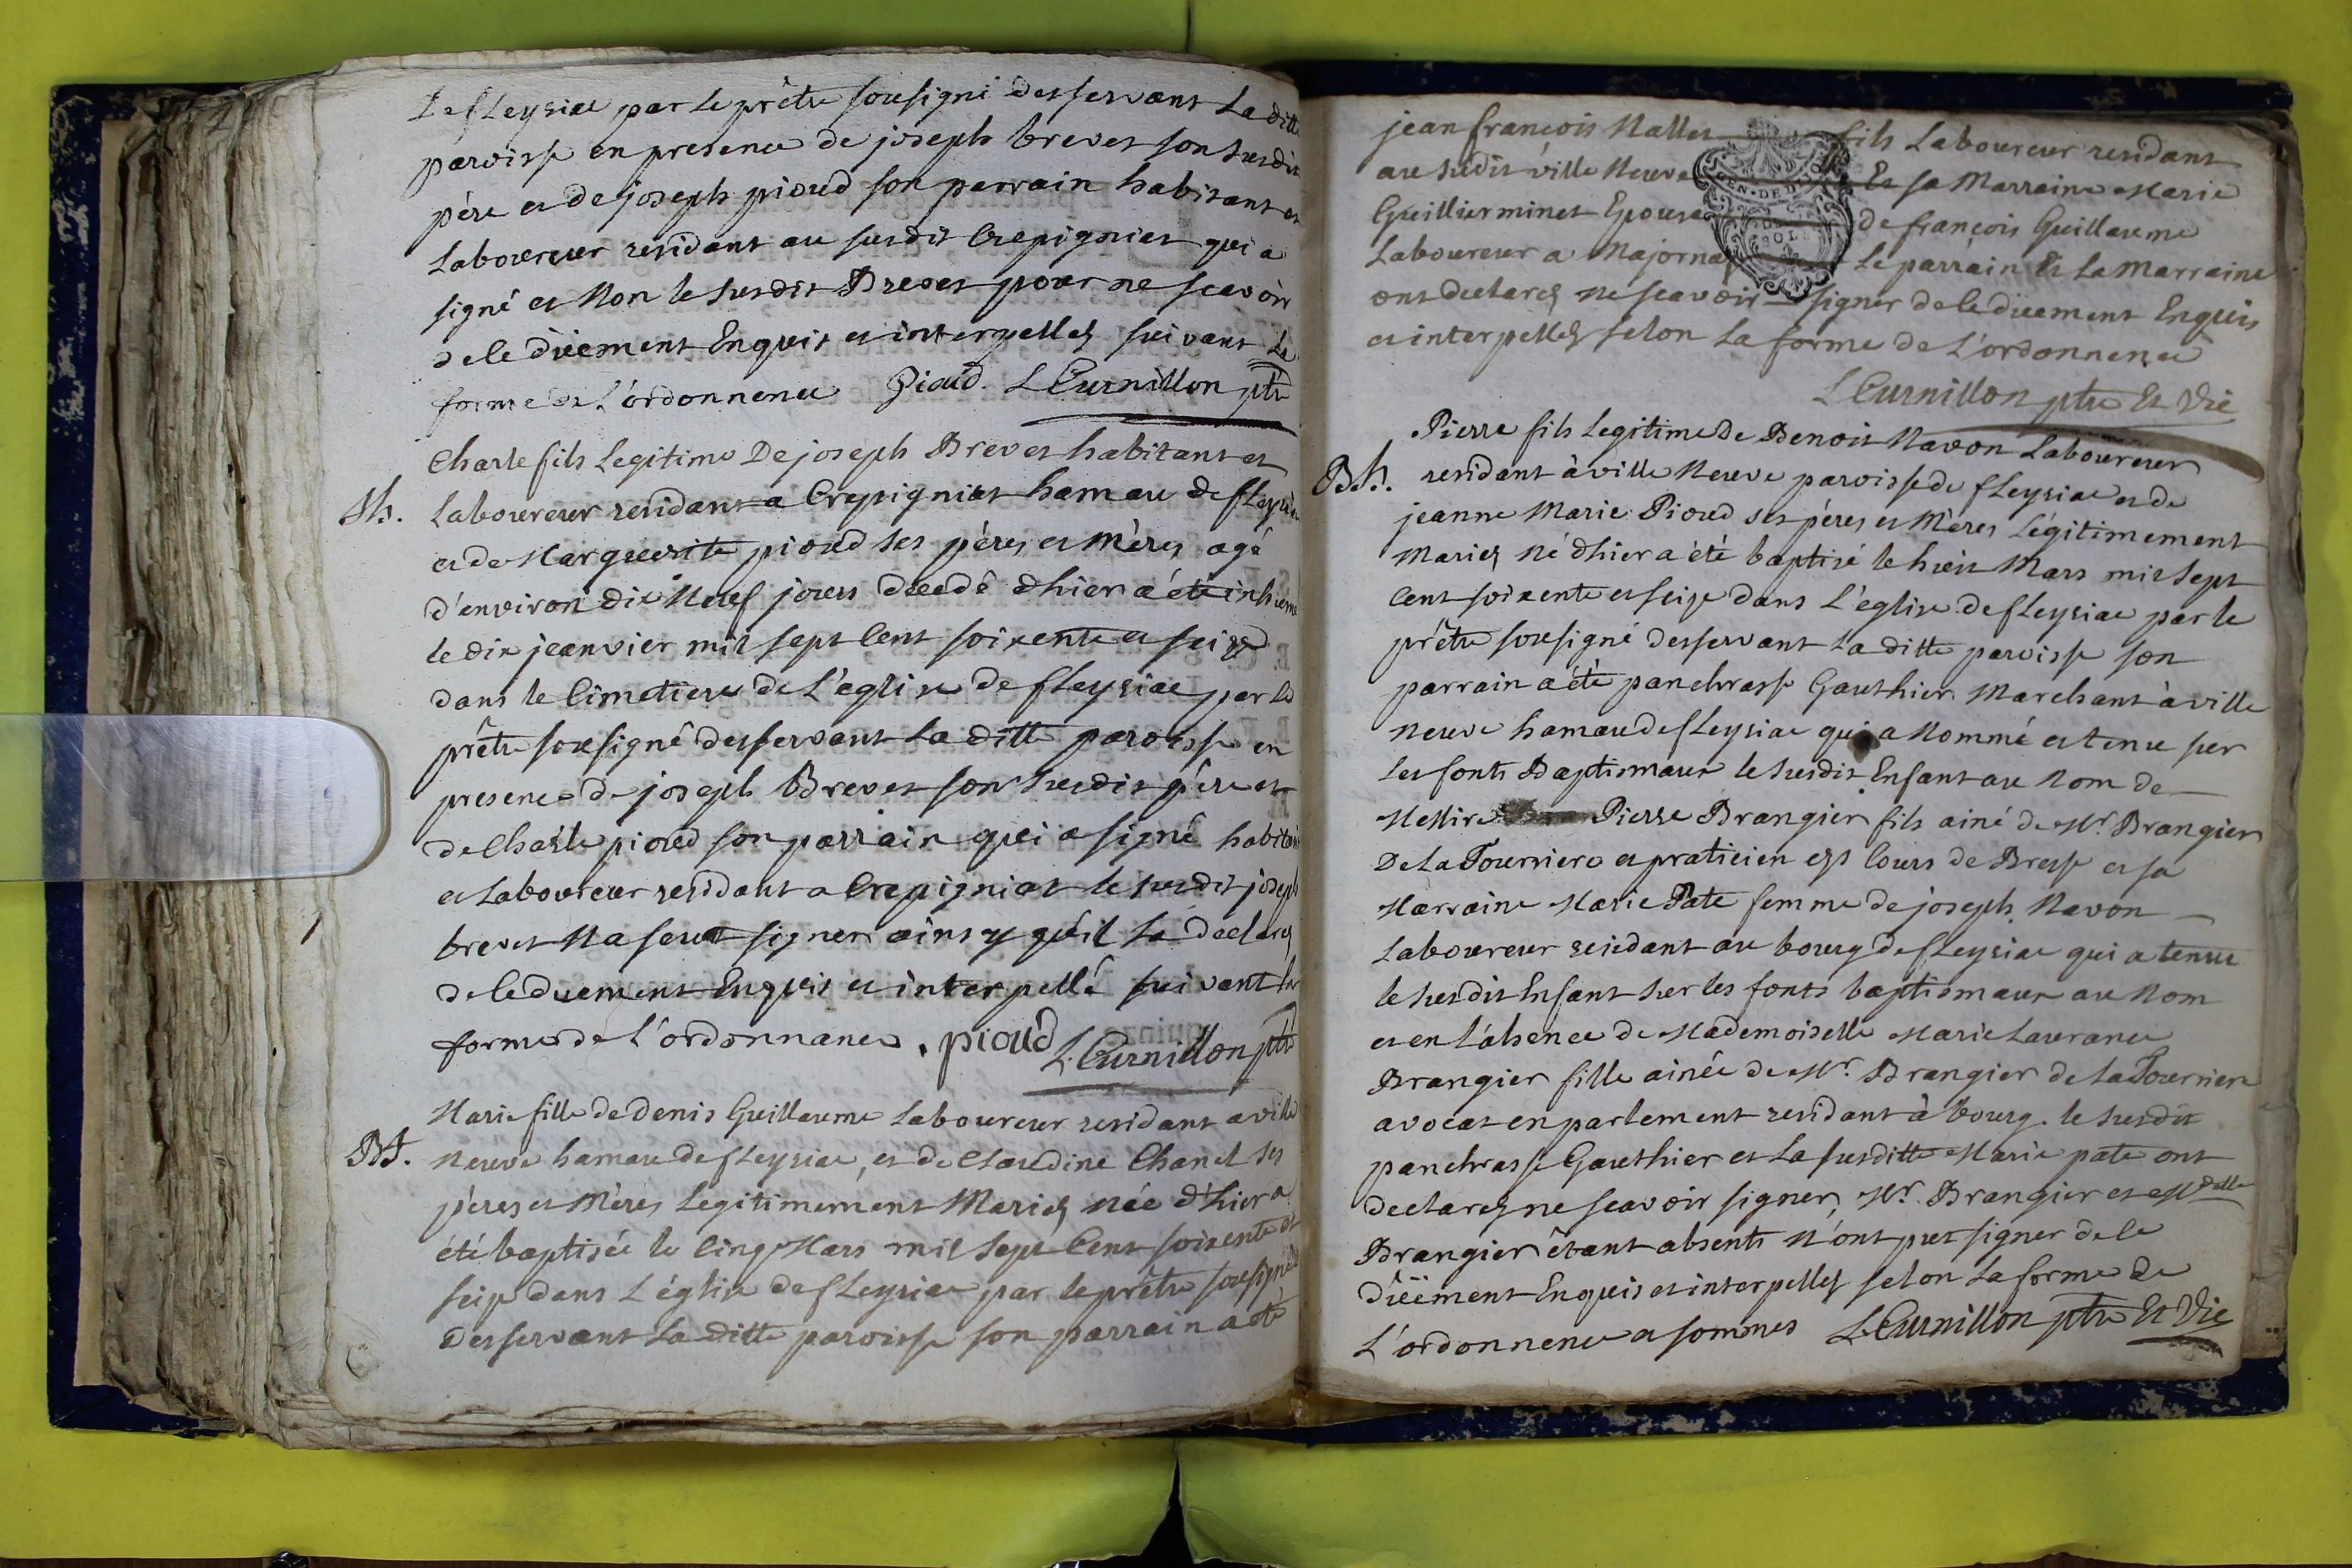 de fleysiac par le prêtre sousigné desservant La ditte
paroisse en presence de joseph brevet son susdit
père et de joseph pioud son parrain habitant et
Laboureur residant au susdit Crepigniat qui a
signé et Non le susdit Brevet pour ne scavoir
de le düement Enquis et interpellés suivant La
forme de L'ordonnence Pioud. L Curnillon ptre
Charle fils Legitime De joseph Brevet habitant et
Sh. Laboureur residant a Crepigniat hamau de fleysiac
et de Marguerite pioud ses pères et Mères agé
d'environ dix Neuf jours décédé dhier a été inhumé
le dix jeanvier mil sept Cent soixente et seize
dans le Cimetiere de L'eglise de fleysiac par le
prêtre sousigné desservant La ditte paroisse en
presence de joseph Brevet son susdit père et
de Charle pioud son parrain qui a signé habitant
et Laboureur residant a Crepigniat le susdit joseph
brevet Na seut signer ainsy qu'il La declares
de le düement Enquis et interpellé suivant la
forme de L'ordonnance. pioud L. Curnillon ptre
Marie fille de denis Guillaume Laboureur residant a ville
Bf. neuve hamau de fleysiac, et de Claudine Chanel ses
pères et Mères Legitimement Mariés née d'hier a
été baptisée le Cinq Mars mil Sept Cent soixente et
seize dans L'église de fleysiac par le prêtre sousigné
Desservant La ditte paroisse son parrain a été
jean françois Nallet fils Laboureur residant
au susdit ville Neuve Et sa Marraine Marie
Guillierminet Epouse de françois Guillaume
Laboureur a Majornas Le parrain Et La Marraine
ont declarés ne scavoir signer de le düement Enquis
et interpellés selon La forme de L'ordonnence
L Curnillon ptre Et Vic
Pierre fils Legitime de Benoit Navon Laboureur
Bh. residant à ville Neuve paroisse de fleysiac et de
jeanne Marie Pioud ses pères et Mères Légitimement
Mariés Né dhier a été baptisé le huit Mars mil sept
Cent soixente et seize dans L'église de fleysiac par le
prêtre sousigné desservant La ditte paroisse son
parrain a été panchrasse Gauthier Marchant à ville
neuve hamau de fleysiac qui a Nommé et tenu sur
les fonts Baptismaux le susdit Enfant au Nom de
Messire Pierre Brangier fils ainé de Mr. Brangier
De La Tourniere et praticien ez Cours de Bresse et sa
Marraine Marie Pate femme de joseph Navon
Laboureur residant au bourg de fleysiac qui a tenu
le susdit Enfant sur les fonts baptismaux au Nom
et en L'absence de Mademoiselle Marie Laurance
Brangier fille ainée de Mr. Brangier de La Tourniere
avocat en parlement residant à bourg. le susdit
panchrasse Gauthier et La susditte Marie pate ont
declarés ne scavoir signer, Mr. Brangier et Mdelle
Brangier étant absents N'ont put signer de le
düement Enquis et interpellés selon La forme de
L'ordonnence et sommes L. Curnillon ptre Et Vic